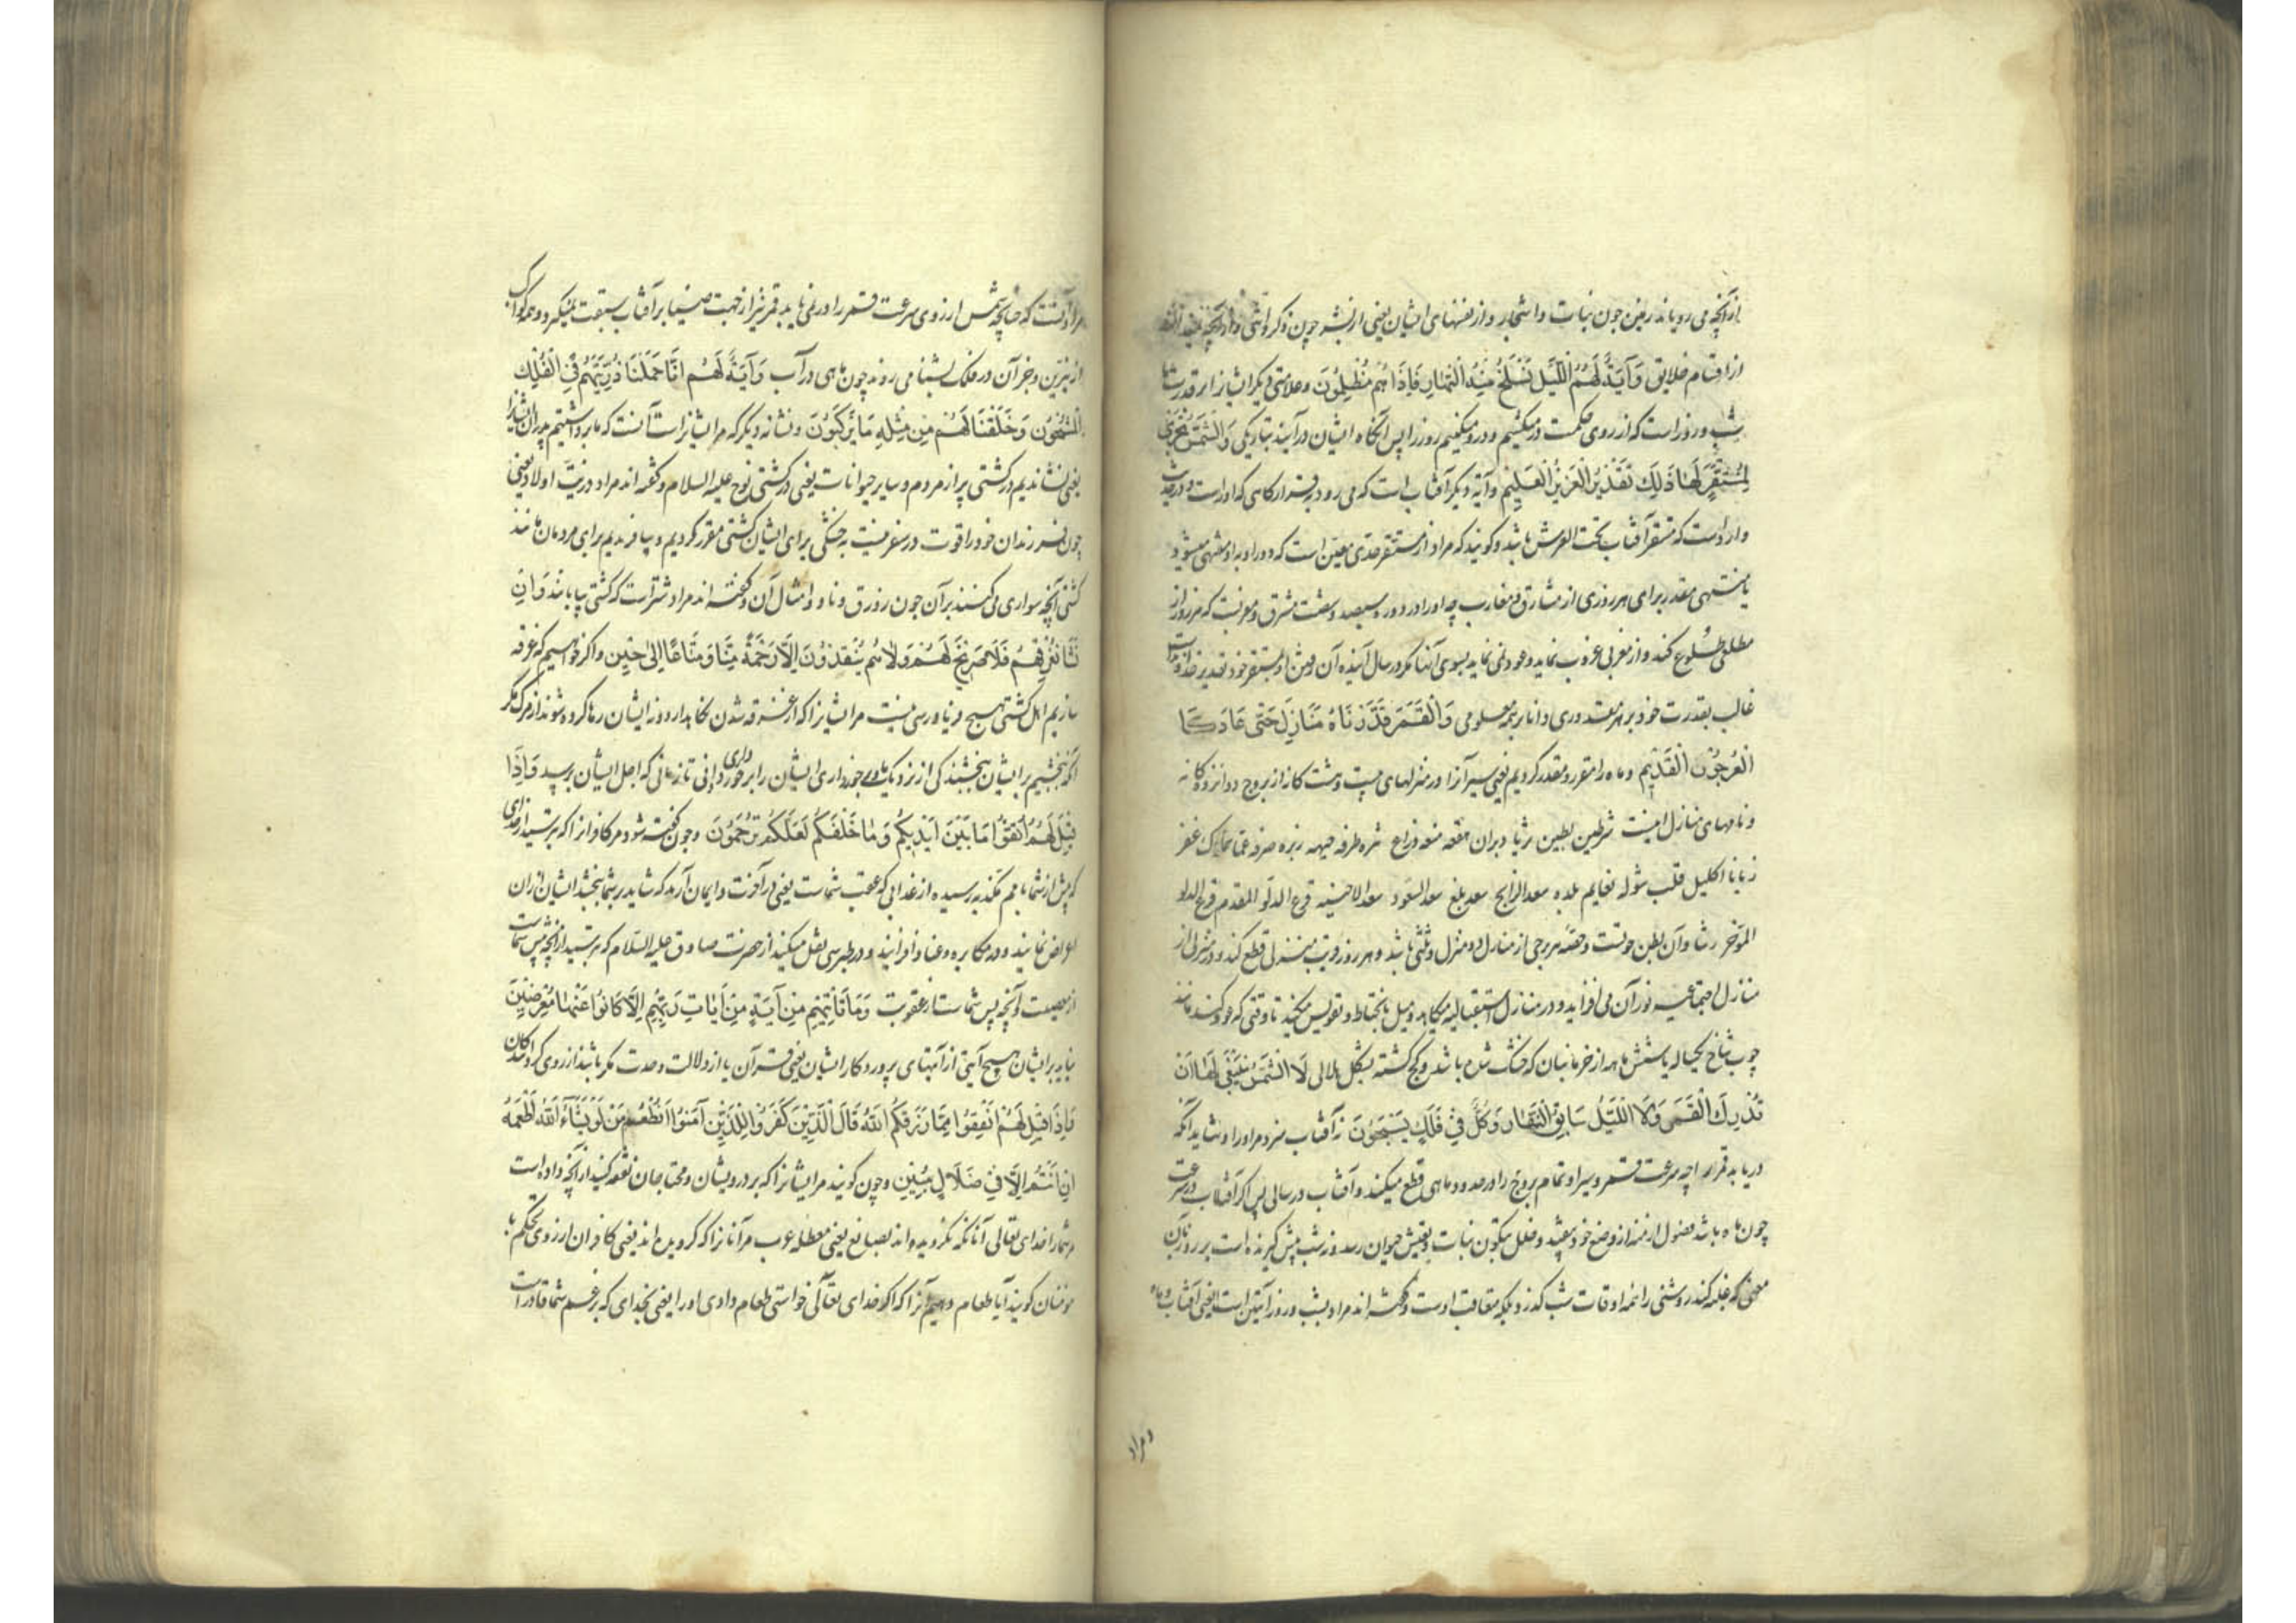 ازآنچه می رویاند زمین چون نبات و اشجار و از نفسهای ایشان یعنی از بشر چون ذکر و انثی و ازآنچه نمیدانند
از اقسام خلایق وَآيَةٌ لَهُمُ اللَّيْلُ نَسْلَخُ مِنْهُ النَّهَارَ فَإِذَا هُمْ مُظْلِمُونَ و علامتی دیگر ایشانرا از قدرت ما
شب و روز است که از روی حکمت درمیکشیم و درو میکنیم روز را پس آنگاه ایشان درآیند بتاریکی وَالشَّمْسُ تَجْرِي
لِمُسْتَقَرٍّ لَهَا ذَلِكَ تَقْدِيرُ الْعَزِيزِ الْعَلِيمِ و آیة دیگر آفتاب است که می رود بقرارگاهی که اوراست و در حدیث
وارد است که مستقر آفتاب تحت العرش باشد و گویند که مراد از مستقر حدی معین است که دور او بدو منتهی میشود
یا منتهی مقدر برای هر روزی از مشارق و مغارب چه او را در دوره سیصد و شصت مشرق و مغربست که هر روز از
مطلعی طلوع کند و از مغربی غروب نماید و عود نمی نماید بسوی آنها مگر در سال آینده آن رفتن او بمستقر خود تقدیر خداوند است
غالب بقدرت خود بر هر مقدوری دانا بر همه معلومی وَالْقَمَرَ قَدَّرْنَاهُ مَنَازِلَ حَتَّى عَادَ كَا
لْعُرْجُونِ الْقَدِيمِ و ماه را مقرر و مقدر کردیم یعنی سیر آنرا در منزلهای بیست و هشت گانه از بروج دوازده گانه
و نامهای منازل اینست شرطین بطین ثریا دبران هقعه هنعه ذراع نثره طرفه جبهه زبره صرفه عوا سماک غفر
زبانا اکلیل قلب شوله نعایم بلده سعد الذابح سعد بلع سعد السعود سعد الاخبیه فرع الدلو المقدم فرع الدلو
المؤخر رشا و آن بطن حوتست و حصه هر برجی از منازل دو منزل و ثلثی باشد و هر روز قریب بمنزلی قطع کند و در منزلی از
منازل اجتماعیه نور آن می افزاید و در منازل استقبالیه میکاهد و میل بانحطاط و تقویس میکند تا وقتی که عود کند مانند
چوب شاخ یکساله یا شش ماهه از خرما بنان که خشک شده باشد و کج گشته بشکل هلالی لَا الشَّمْسُ يَنْبَغِي لَهَا أَنْ
تُدْرِكَ الْقَمَرَ وَلَا اللَّيْلُ سَابِقُ النَّهَارِ وَكُلٌّ فِي فَلَكٍ يَسْبَحُونَ نه آفتاب سزد مر او را و نشاید آنکه
دریابد قمر را چه سرعت قمر و سیر او تمام بروج را در حدود ماهی قطع میکند و آفتاب در سالی پس اگر آفتاب در سرعت
چون ماه باشد فصول ازمنه از وضع خود بیفتد و خلل بتکون نبات و تعیش حیوان رسد و نه شب پیش گیرنده است بر روز بآن
معنی که غلبه کند روشنی را نه اوقات شب گذرد بلکه متعاقب اوست و گفته اند مراد بشب و روز آیتین است یعنی آفتاب و ماه
و مراد
مراد آنست که چنانچه شمس از روی سرعت قمر را در نمی یابد قمر نیز از جهت ضیا بر آفتاب سبقت نمیگیرد و همه کواکب
از نیرین و جز آن در فلک بشنا می روند چون ماهی در آب وَآيَةٌ لَهُمْ أَنَّا حَمَلْنَا ذُرِّيَّتَهُمْ فِي الْفُلْكِ
الْمَشْحُونِ وَخَلَقْنَا لَهُمْ مِنْ مِثْلِهِ مَا يَرْكَبُونَ و نشانه دیگر که مر ایشانراست آنست که ما برداشتیم پدران ایشانرا
یعنی نشاندیم در کشتی پر از مردم و سایر حیوانات یعنی در کشتی نوح علیه السلام و گفته اند مراد ذریت اولاد یعنی
چون فرزندان خود را قوت در سفر نیست به خشکی برای ایشان کشتی مقرر کردیم و بیافریدیم برای مردمان مانند
کشتی آنچه سواری می کنند بر آن چون زورق و ناو و امثال آن و گفته اند مراد شتر است که کشتی بیابانند وَإِنْ
نَشَأْ نُغْرِقْهُمْ فَلَا صَرِيخَ لَهُمْ وَلَا هُمْ يُنْقَذُونَ إِلَّا رَحْمَةً مِنَّا وَمَتَاعًا إِلَى حِينٍ و اگر خواهیم که غرقه
سازیم اهل کشتی هیچ فریادرسی نیست مر ایشانرا که از غرقه شدن نگاهدارد و نه ایشان رها کرده شوند از مرگ مگر
آنکه ببخشیم بر ایشان بخشیدنی از نزدیک ما و برخورداری ایشان را برخورداری دانی تا زمانی که اجل ایشان برسد وَإِذَا
قِيلَ لَهُمُ اتَّقُوا مَا بَيْنَ أَيْدِيكُمْ وَمَا خَلْفَكُمْ لَعَلَّكُمْ تُرْحَمُونَ و چون گفته شود مر کافرانرا که بترسید از عذابی
که پیش از شما بامم مکذبه رسیده از عذابی که عقب شماست یعنی در آخرت و ایمان آرید که شاید بر شما ببخشد ایشان از آن
اعراض نمایند و در مکابره و عناد افزایند و در طبرسی نقل میکند از حضرت صادق علیه السلام که بترسید از آنچه پیش شماست
از معصیت و آنچه پس شماست از عقوبت وَمَا تَأْتِيهِمْ مِنْ آيَةٍ مِنْ آيَاتِ رَبِّهِمْ إِلَّا كَانُوا عَنْهَا مُعْرِضِينَ
نیاید بر ایشان هیچ آیتی از آیتهای پروردگار ایشان یعنی قرآن یا از دلالت وحدت مگر باشند از روی گردانندگان
وَإِذَا قِيلَ لَهُمْ أَنْفِقُوا مِمَّا رَزَقَكُمُ اللَّهُ قَالَ الَّذِينَ كَفَرُوا لِلَّذِينَ آمَنُوا أَنُطْعِمُ مَنْ لَوْ يَشَاءُ اللَّهُ أَطْعَمَهُ
إِنْ أَنْتُمْ إِلَّا فِي ضَلَالٍ مُبِينٍ و چون گویند مر ایشانرا که بر درویشان و محتاجان نفقه کنید از آنچه داده است
مر شما را خدای تعالی آنانکه نگرویده اند بصانع یعنی معطله عرب مر آنانرا که گرویده اند یعنی کافران از روی تحکم با
مومنان گویند آیا طعام دهیم آنرا که اگر خدای تعالی خواستی طعام دادی او را یعنی بخدای که بزعم شما قادر است